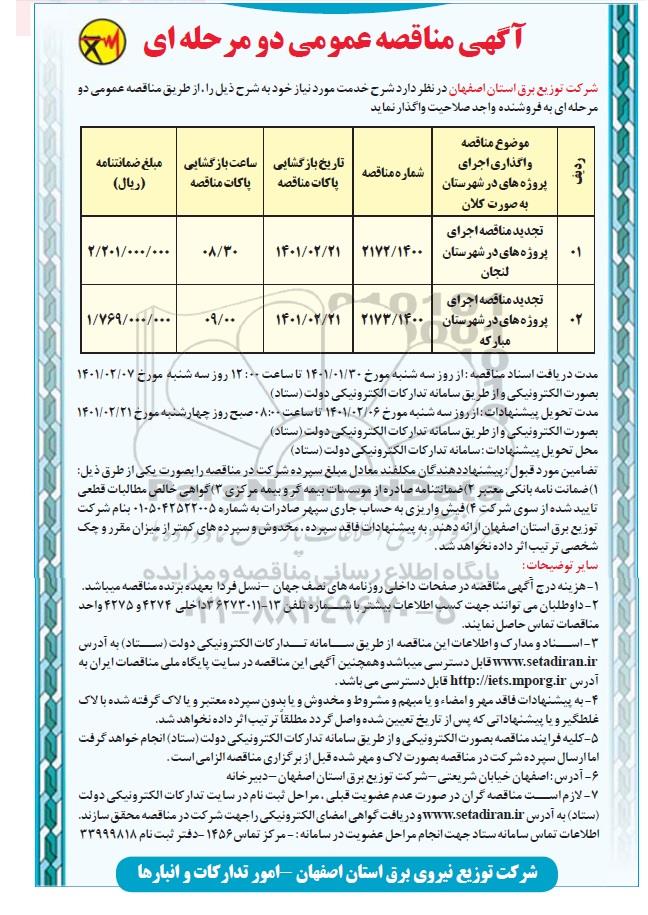 آگهی مناقصه عمومی دو مرحله ای
شرکت توزیع برق استان اصفهان در نظر دارد شرح خدمت مورد نیاز خود به شرح ذیل را ، از طریق مناقصه عمومی دو
مرحله ای به فروشنده واجد صلاحیت واگذار نماید
ردیف | موضوع مناقصه واگذاری اجرای پروژه های در شهرستان به صورت کلان | شماره مناقصه | تاریخ بازگشایی پاکات مناقصه | ساعت بازگشایی پاکات مناقصه | مبلغ ضمانتنامه (ریال)
۰۱ | تجدید مناقصه اجرای پروژه های در شهرستان لنجان | ۲۱۷۲/۱۴۰۰ | ۱۴۰۱/۰۲/۲۱ | ۰۸/۳۰ | ۲/۲۰۱/۰۰۰/۰۰۰
۰۲ | تجدید مناقصه اجرای پروژه های در شهرستان مبارکه | ۲۱۷۳/۱۴۰۰ | ۱۴۰۱/۰۲/۲۱ | ۰۹/۰۰ | ۱/۷۶۹/۰۰۰/۰۰۰
مدت دریافت اسناد مناقصه : از روز سه شنبه مورخ ۱۴۰۱/۰۱/۳۰ تا ساعت ۱۲:۰۰ روز سه شنبه مورخ ۱۴۰۱/۰۲/۰۷
بصورت الکترونیکی و از طریق سامانه تدارکات الکترونیکی دولت (ستاد)
مدت تحویل پیشنهادات : از روز سه شنبه مورخ ۱۴۰۱/۰۲/۰۶ تا ساعت ۰۸:۰۰ صبح روز چهارشنبه مورخ ۱۴۰۱/۰۲/۲۱
بصورت الکترونیکی و از طریق سامانه تدارکات الکترونیکی دولت (ستاد)
محل تحویل پیشنهادات : سامانه تدارکات الکترونیکی دولت (ستاد)
تضامین مورد قبول : پیشنهاددهندگان مکلفند معادل مبلغ سپرده شرکت در مناقصه را بصورت یکی از طرق ذیل:
۱)ضمانت نامه بانکی معتبر ۲)ضمانتنامه صادره از موسسات بیمه گر و بیمه مرکزی ۳)گواهی خالص مطالبات قطعی
تایید شده از سوی شرکت ۴)فیش واریزی به حساب جاری سپهر صادرات به شماره ۰۱۰۵۰۴۲۵۲۲۰۰۵ بنام شرکت
توزیع برق استان اصفهان ارائه دهند. به پیشنهادات فاقد سپرده ، مخدوش و سپرده های کمتر از میزان مقرر و چک
شخصی ترتیب اثر داده نخواهد شد.
سایر توضیحات:
۱-هزینه درج آگهی مناقصه در صفحات داخلی روزنامه های نصف جهان –نسل فردا بعهده برنده مناقصه میباشد.
۲-داوطلبان می توانند جهت کسب اطلاعات بیشتر با شماره تلفن ۱۳-۳۶۲۷۳۰۱۱ داخلی ۴۲۷۴ و ۴۲۷۵ واحد
مناقصات تماس حاصل نمایند.
۳-اسناد و مدارک و اطلاعات این مناقصه از طریق سامانه تدارکات الکترونیکی دولت (ستاد) به آدرس
www.setadiran.ir قابل دسترسی میباشد و همچنین آگهی این مناقصه در سایت پایگاه ملی مناقصات ایران به
آدرس http://iets.mporg.ir قابل دسترسی می باشد .
۴-به پیشنهادات فاقد مهر و امضاء و یا مبهم و مشروط و مخدوش و یا بدون سپرده معتبر و یا لاک گرفته شده با لاک
غلطگیر و یا پیشنهاداتی که پس از تاریخ تعیین شده واصل گردد مطلقاً ترتیب اثر داده نخواهد شد.
۵-کلیه فرایند مناقصه بصورت الکترونیکی و از طریق سامانه تدارکات الکترونیکی دولت (ستاد) انجام خواهد گرفت
اما ارسال سپرده شرکت در مناقصه بصورت لاک و مهر شده قبل از برگزاری مناقصه الزامی است .
۶-آدرس : اصفهان خیابان شریعتی –شرکت توزیع برق استان اصفهان –دبیرخانه
۷-لازم است مناقصه گران در صورت عدم عضویت قبلی ، مراحل ثبت نام در سایت تدارکات الکترونیکی دولت
(ستاد) به آدرس www.setadiran.ir و دریافت گواهی امضای الکترونیکی را جهت شرکت در مناقصه محقق سازند.
اطلاعات تماس سامانه ستاد جهت انجام مراحل عضویت در سامانه : -مرکز تماس ۱۴۵۶-دفتر ثبت نام ۳۳۹۹۹۸۱۸
شرکت توزیع نیروی برق استان اصفهان –امور تدارکات و انبارها
ParsNamadData
پایگاه اطلاع رسانی مناقصه و مزایده
۰۲۱-۸۸۳۴۹۶۷۰-۵